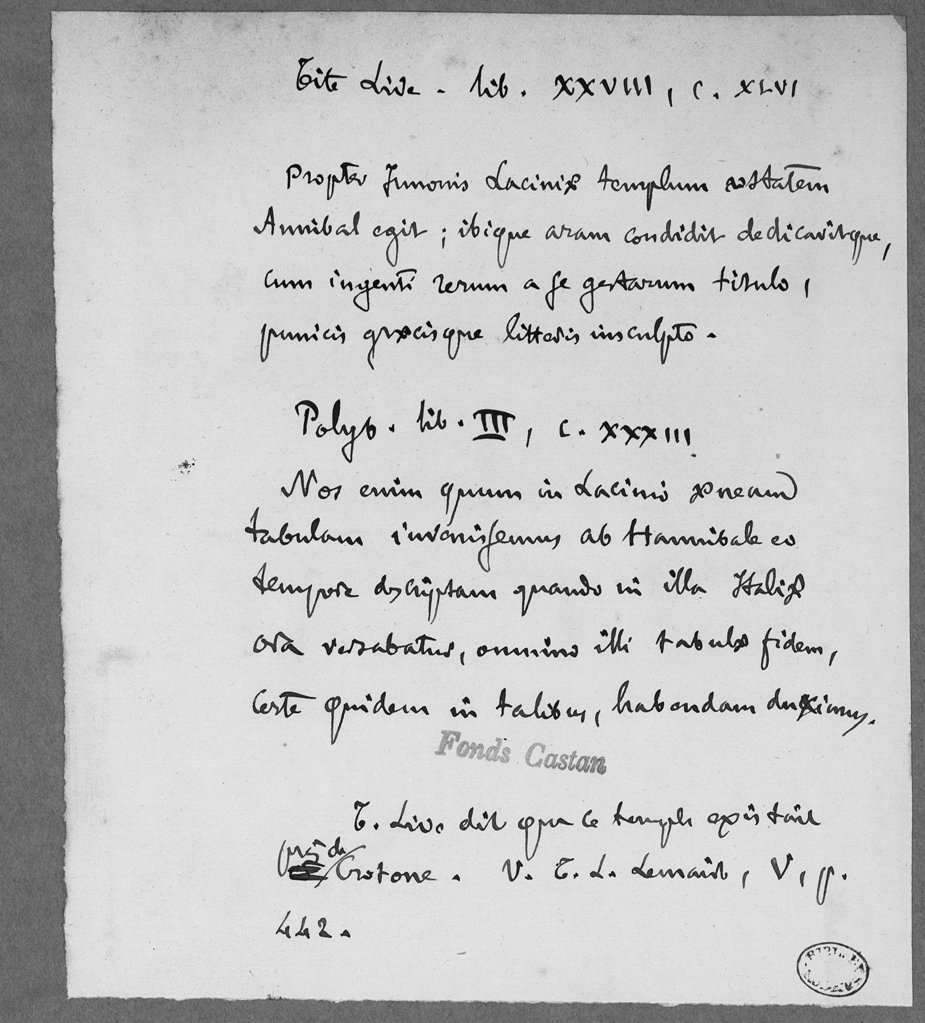 Tite Live - lib. XXVIII, c. XLVI
Propter Junonis Laciniæ templum æstatem
Annibal egit ; ibique aram condidit dedicavitque,
cum ingenti rerum a se gestarum titulo,
punicis græcisque litteris insculpto.
Polyb. lib. III, c. XXXIII
Nos enim quum in Lacinio æneam
tabulam invenissemus ab Hannibale eo
tempore descriptam quando in illa Italiæ
ora versabatur, omnino illi tabulæ fidem,
certe quidem in talibus, habendam duximus.
Fonds Castan
T. Live dit que ce temple existait
près de
Crotone. V. T. L. Lemaire, V, p.
442.